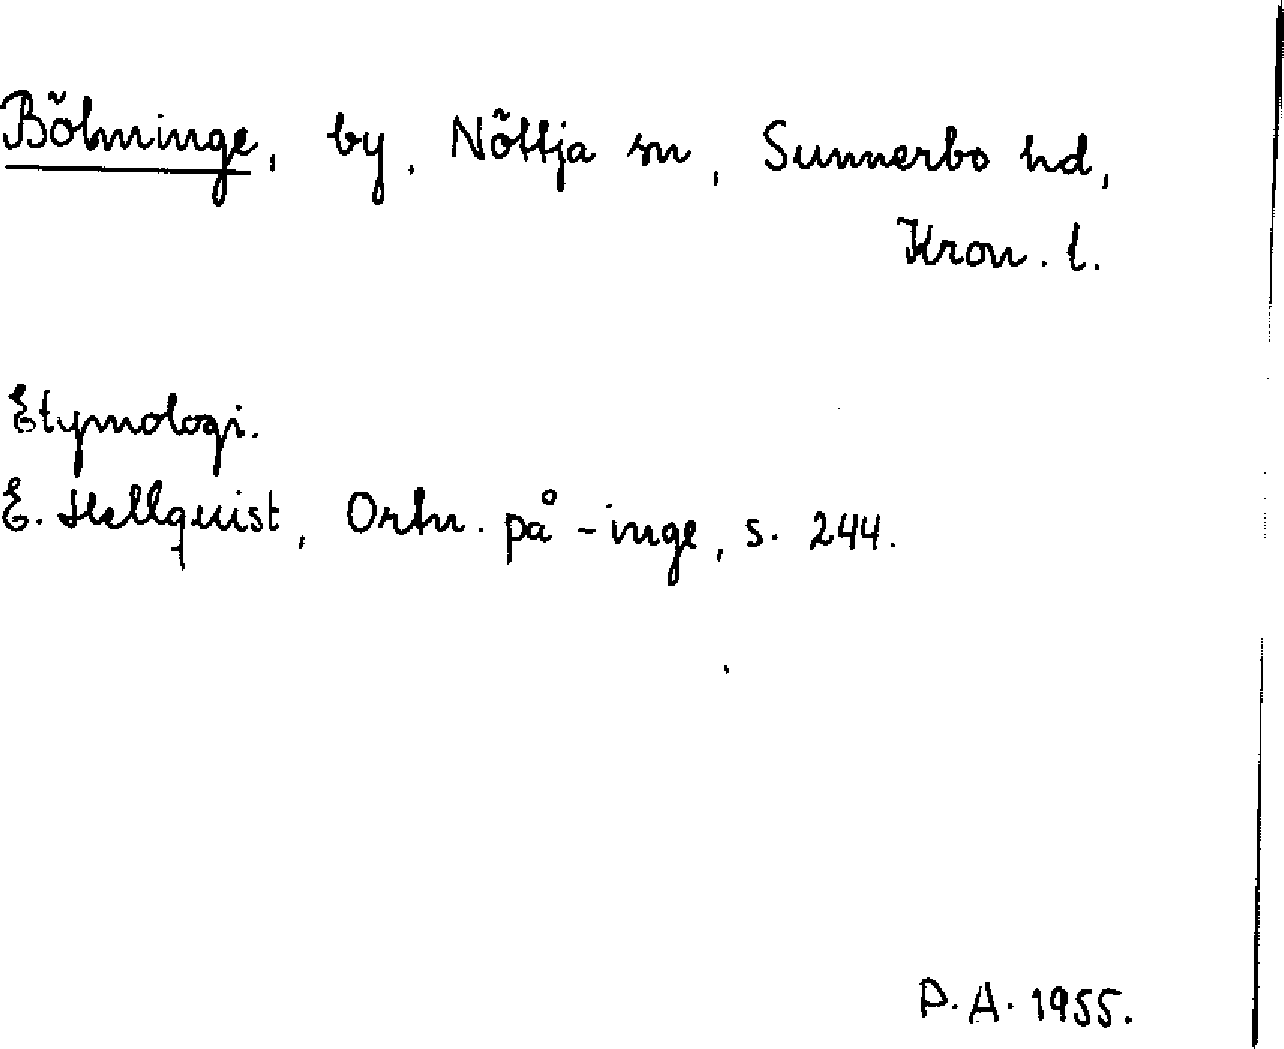 Bölminge, by, Nöttja sn, Sunnerbo hd,
Kron. l.
Etymologi.
E. Hellquist, Ortn. på -inge, s. 244.
P. A. 1955.